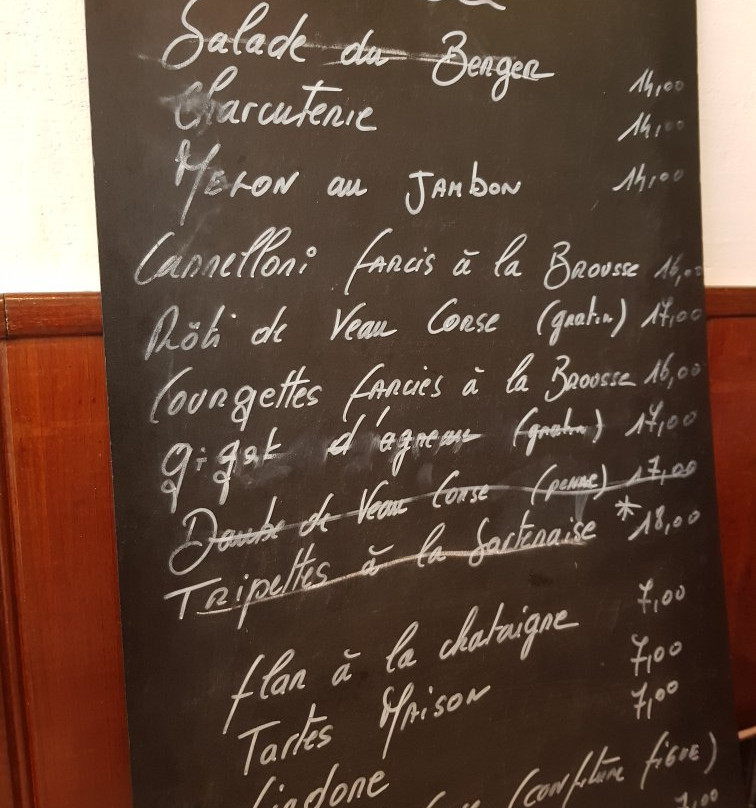 Salade du Berger 14,00
Charcuterie 14,00
Melon au Jambon 14,00
Cannelloni farcis à la Brousse 16,00
Rôti de Veau Corse (gratin) 17,00
Courgettes farcies à la Brousse 16,00
gigot d'agneau (gratin) 17,00
Daube de Veau Corse (penne) 17,00
Tripettes à la Sartenaise * 18,00
flan à la chataigne 7,00
Tartes Maison 7,00
Fiadone 7,00
(confiture figue)